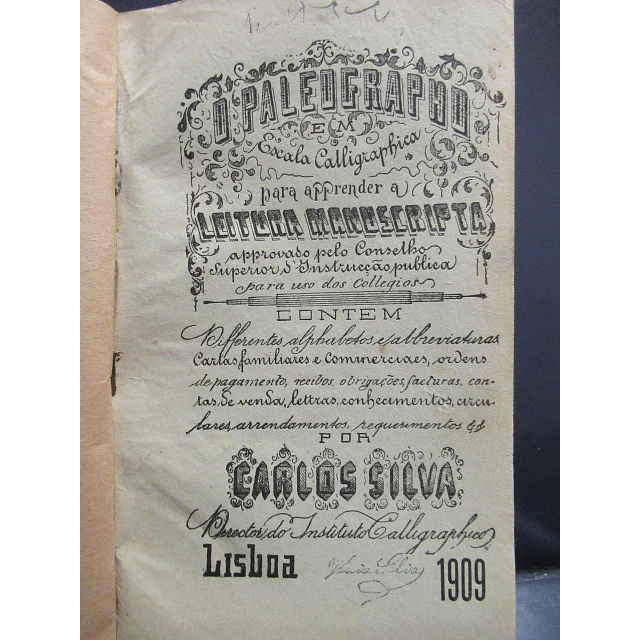 O PALEOGRAPHO
EM
Escala Calligraphica
para apprender a
LEITURA MANUSCRIPTA
approvado pelo Conselho
Superior d'Instrucção publica
para uso dos Collegios
CONTEM
Differentes alphabetos, e abbreviaturas
Cartas familiares e Commerciaes, ordens
de pagamento, recibos, obrigações, facturas, con-
tas de venda, lettras, conhecimentos, circu-
lares, arrendamentos, requerimentos &&
POR
CARLOS SILVA
Director do Instituto Calligraphico
Lisboa
1909